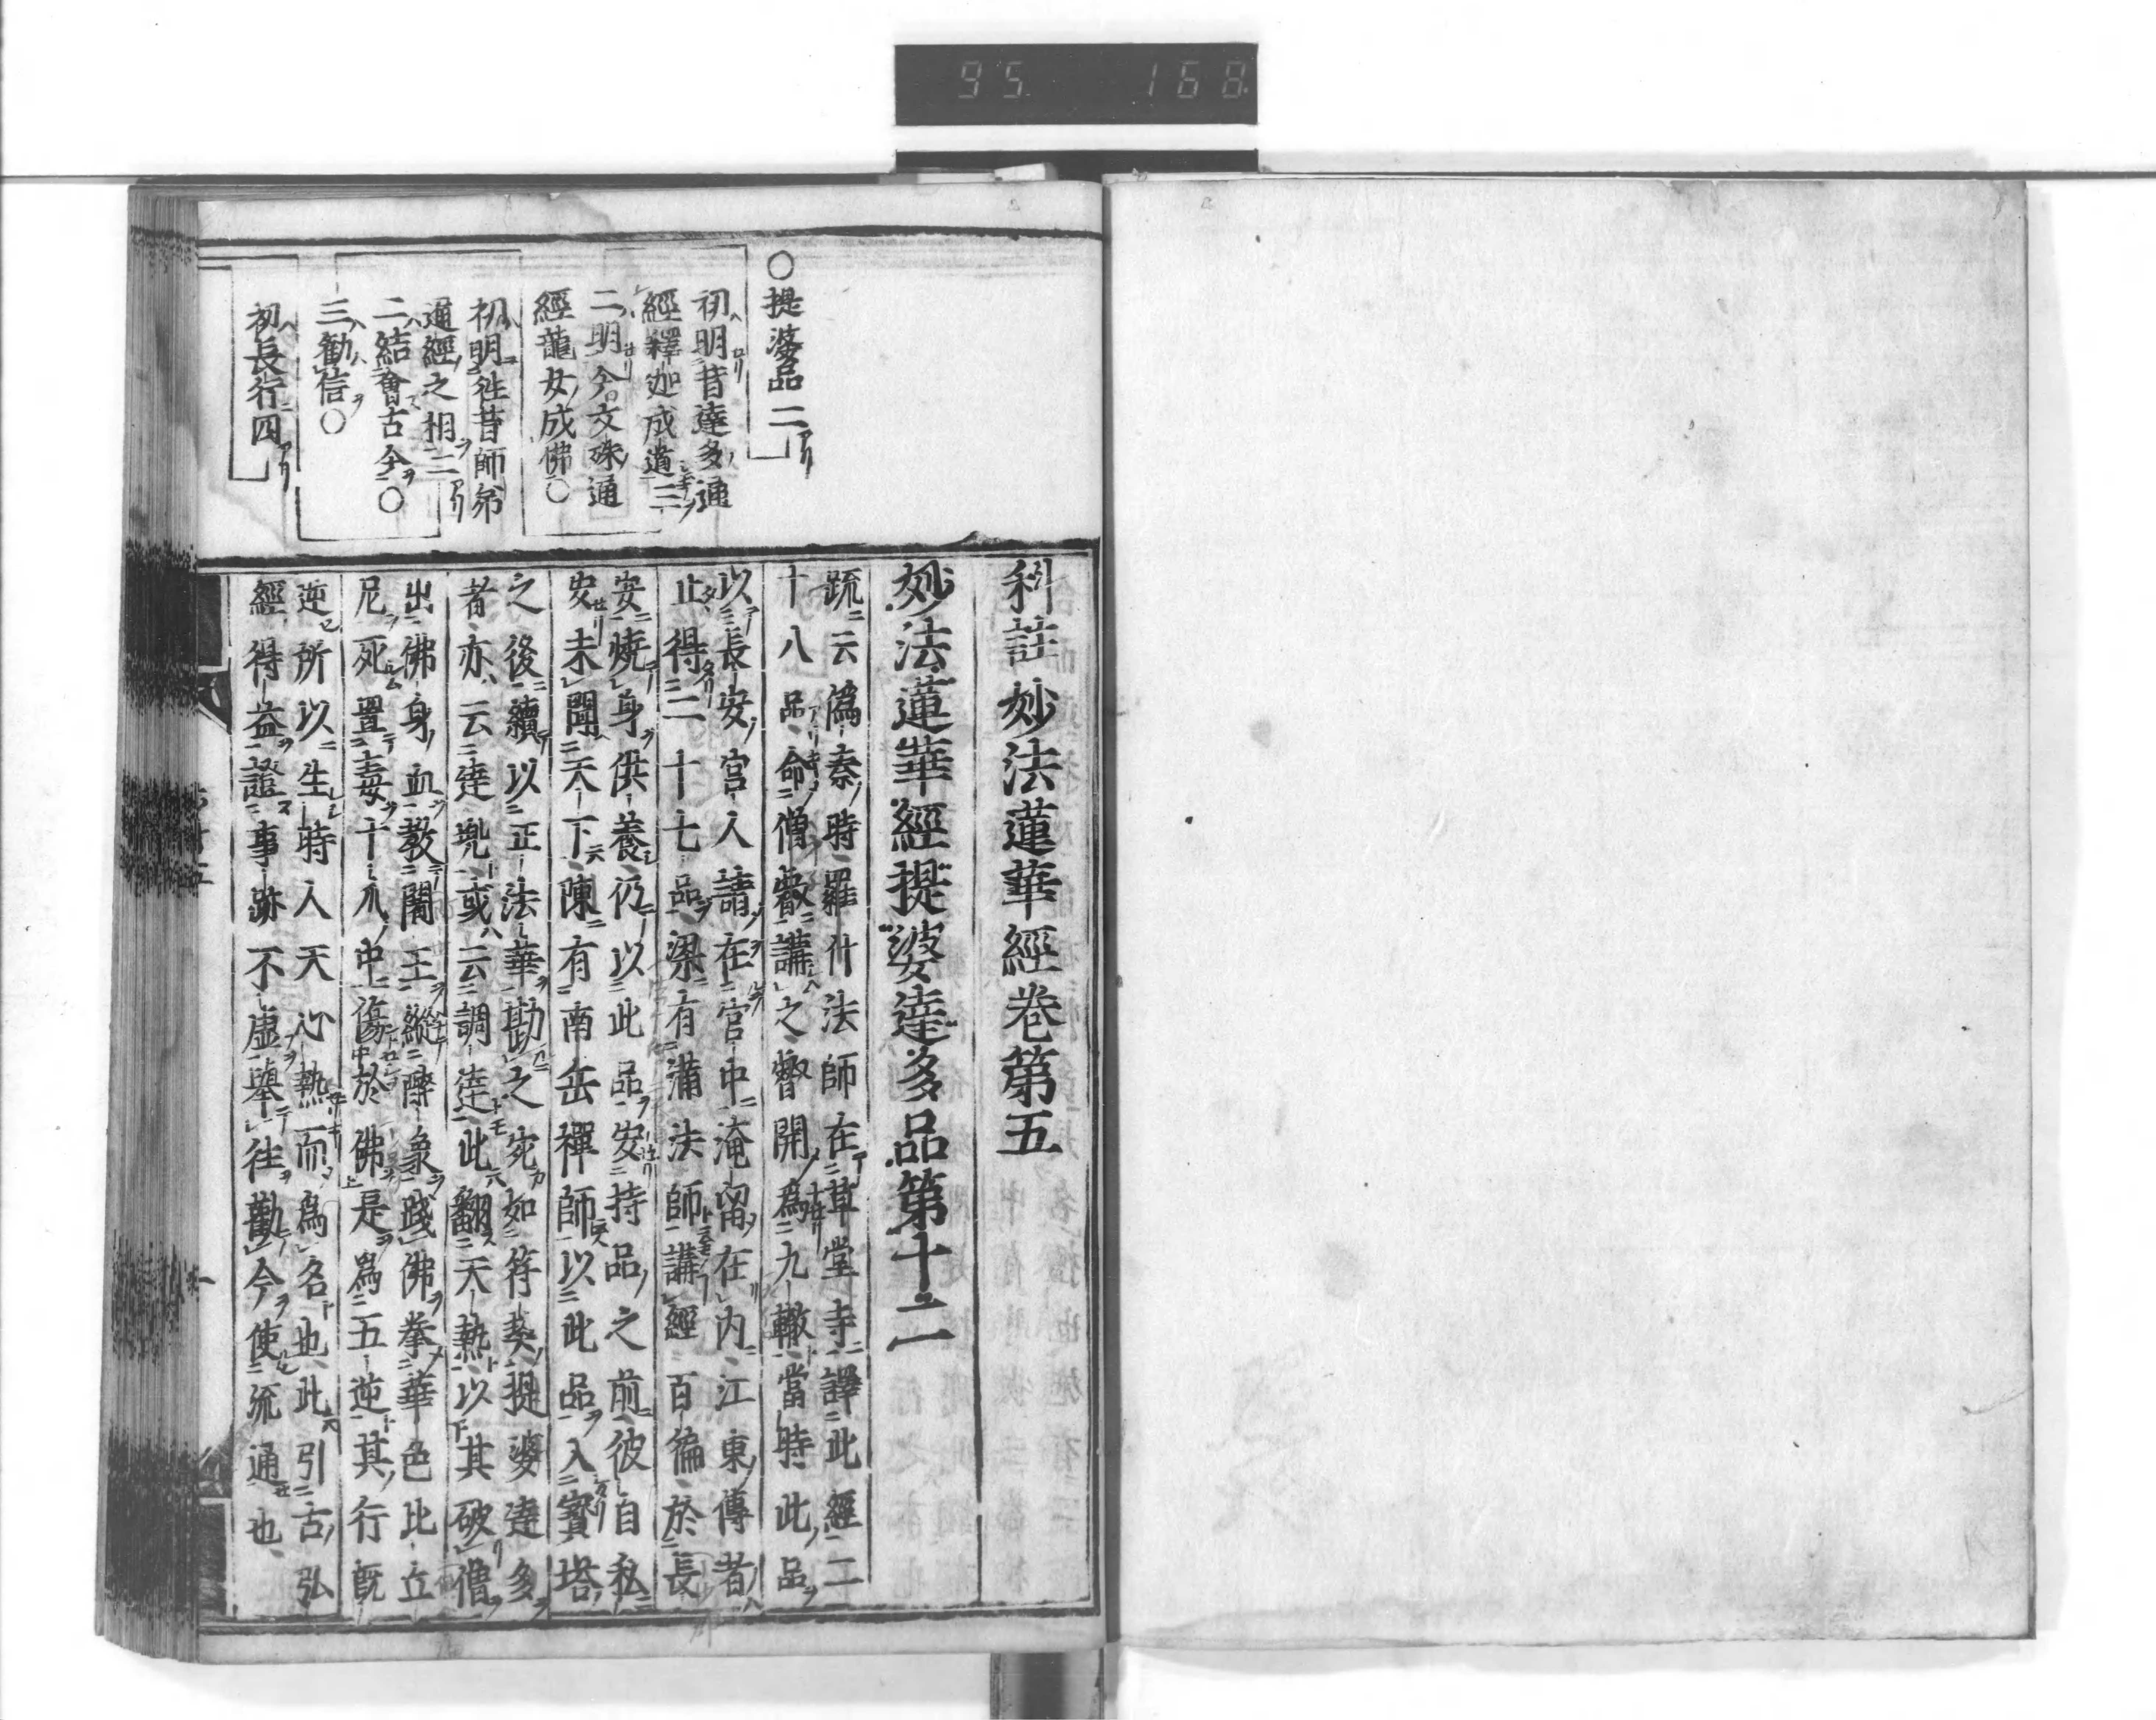 95 168
○提婆品二
初明昔達多通
經釋迦成道三
二明今文殊通
經龍女成佛○
初明徃昔師弟
通經之相二
二結會古今○
三勸信○
初長行四
科註妙法蓮華經卷第五
妙法蓮華經提婆達多品第十二
疏云偽秦時羅什法師在草堂寺譯此經二
十八品命僧叡講之叡開為九轍當時此品
以長安宮人請在宮中淹留在內江東傳者
止得二十七品梁有滿法師講經百徧於長
安燒身供養仍以此品安持品之前彼自私
安未聞天下陳有南岳禪師以此品入寶塔
之後續以正法華勘之宛如符契提婆達多
者亦云達兜或云調達此翻天熱以其破僧
出佛身血教闍王縱醉象踐佛拳華色比丘
尼死置毒十爪中傷於佛是為五逆其行既
逆所以生時人天心熱而為名也此引古弘
經得益證事跡不虛舉徃勸今使流通也